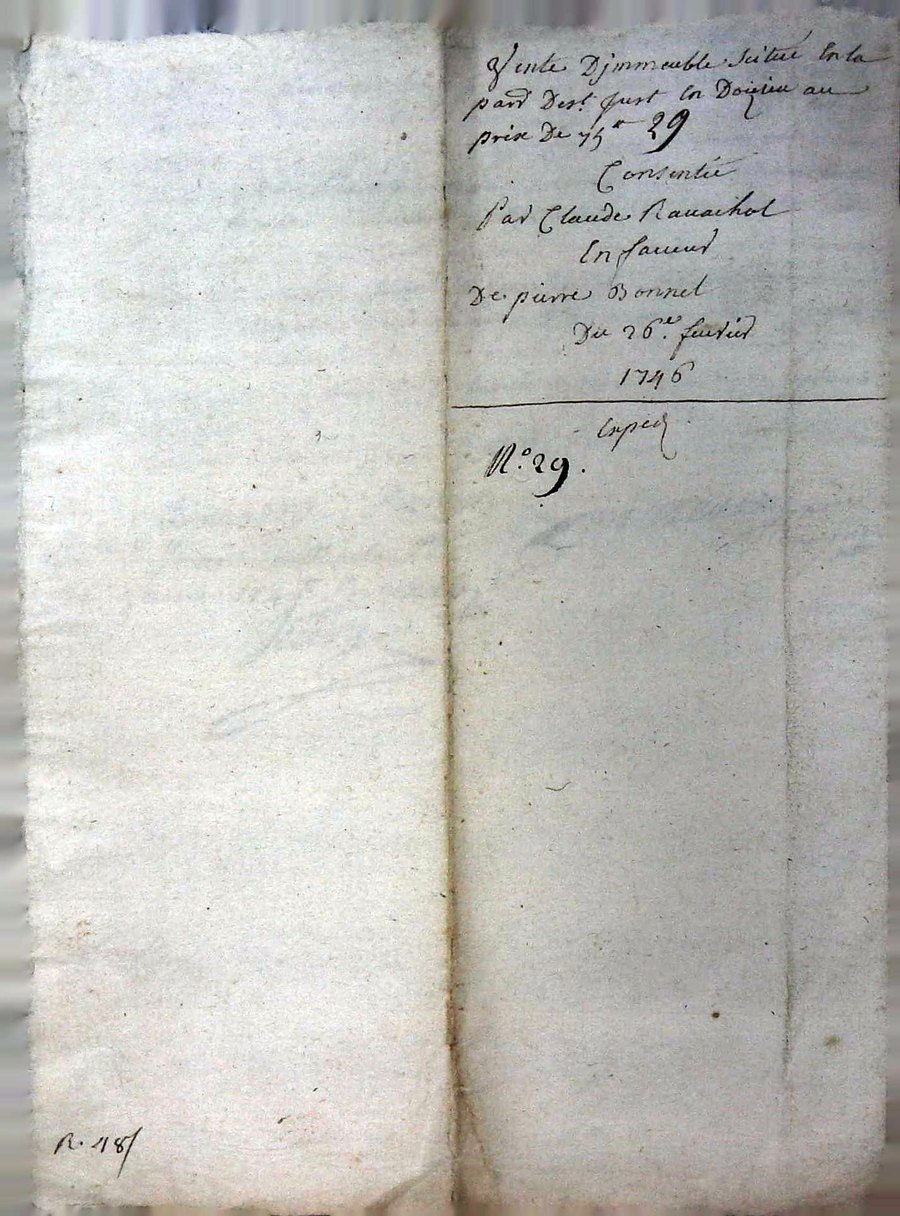 Vente Djmmeuble Scitué En la
parr Dest just En Doizieu au
prix De 75ᵗᵗ 29
Consentie
Par Claude Ravachol
En faveur
De pierre Bonnet
Du 26.e fevrier
1746
Exped
N.o 29.
R. 48/